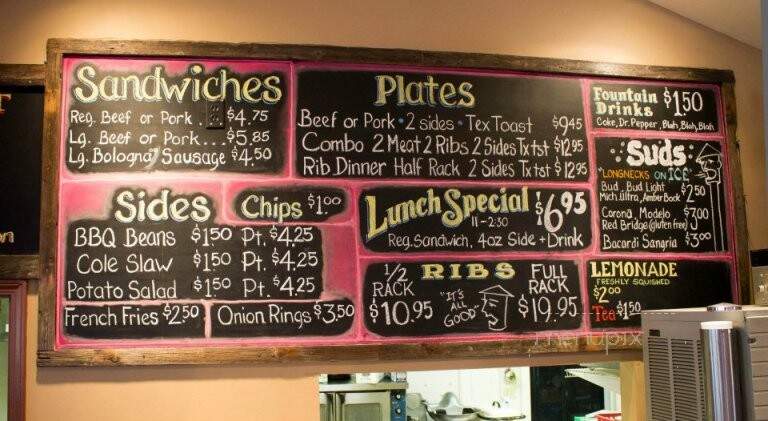 Sandwiches
Reg. Beef or Pork . . $4.75
Lg. Beef or Pork... $5.85
Lg. Bologna/Sausage $4.50
Sides
Chips $1.00
BBQ Beans $1.50 Pt. $4.25
Cole Slaw $1.50 Pt. $4.25
Potato Salad $1.50 Pt. $4.25
French Fries $2.50
Onion Rings $3.50
Plates
Beef or Pork • 2 sides • Tex Toast $9.45
Combo 2 Meat 2 Ribs 2 Sides Tx tst $12.95
Rib Dinner Half Rack 2 Sides Tx tst $12.95
Lunch Special $6.95
11-2:30
Reg. Sandwich, 4oz Side + Drink
RIBS
1/2 RACK
$10.95
"IT'S ALL GOOD"
FULL RACK
$19.95
Fountain Drinks $1.50
Coke, Dr. Pepper, Blah, Blah, Blah
Suds
"LONGNECKS ON ICE"
Bud, Bud Light
Mich. Ultra, Amber Bock $2.50
Corona, Modelo
Red Bridge (gluten free) $3.00
Bacardi Sangria $3.00
LEMONADE
FRESHLY SQUISHED
$2.00
Tea $1.50
menupix